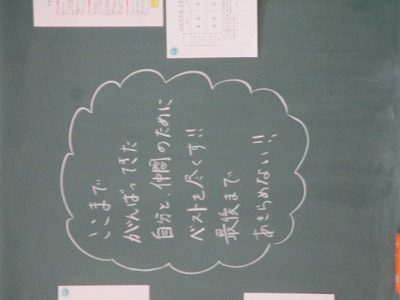 ここまで
がんばってきた
自分と仲間のために
ベストを尽くす!!
最後まで
あきらめない!!